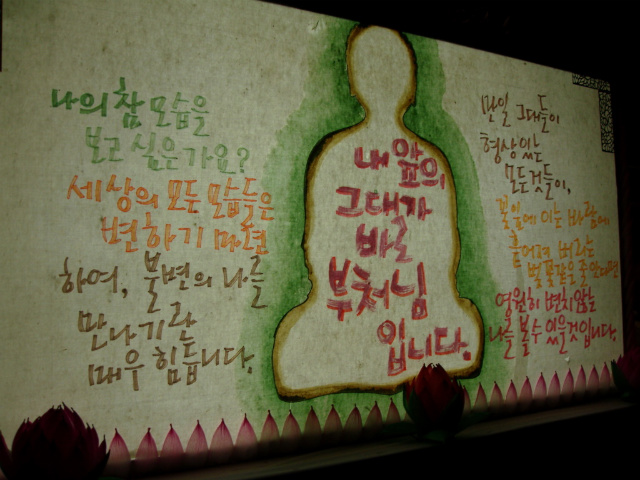 나의 참 모습을
보고 싶은가요?
세상의 모든 모습들은
변하기 마련
하여, 불변의 나를
만나기란
매우 힘듭니다.
내 앞의
그대가
바로
부처님
입니다.
만일 그대들이
형상있는
모든것들이,
봄읍에 이는 바람에
흩어져 버리는
벚꽃같은 줄 안다면
영원히 변치않는
나를 볼 수 있을것입니다.